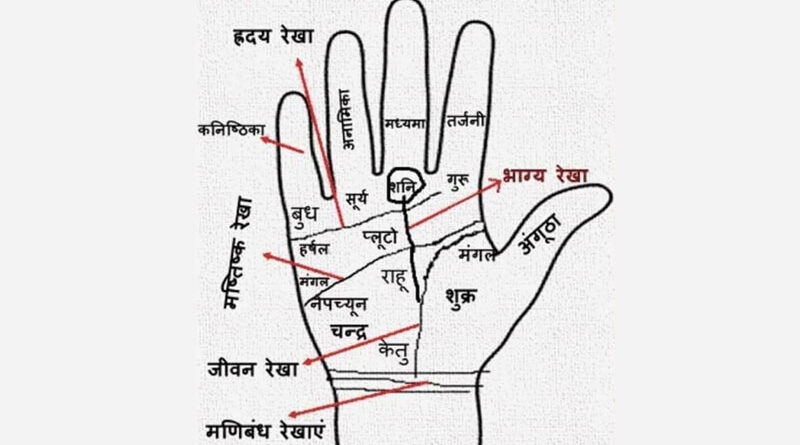 ह्रदय रेखा
अनामिका
मध्यमा
तर्जनी
कनिष्ठिका
शनि
गुरू
भाग्य रेखा
सूर्य
बुध
मष्तिष्क रेखा
प्लूटो
हर्षल
मंगल
अंगूठा
मंगल
राहू
शुक्र
नेपच्यून
चन्द्र
केतु
जीवन रेखा
मणिबंध रेखाएं